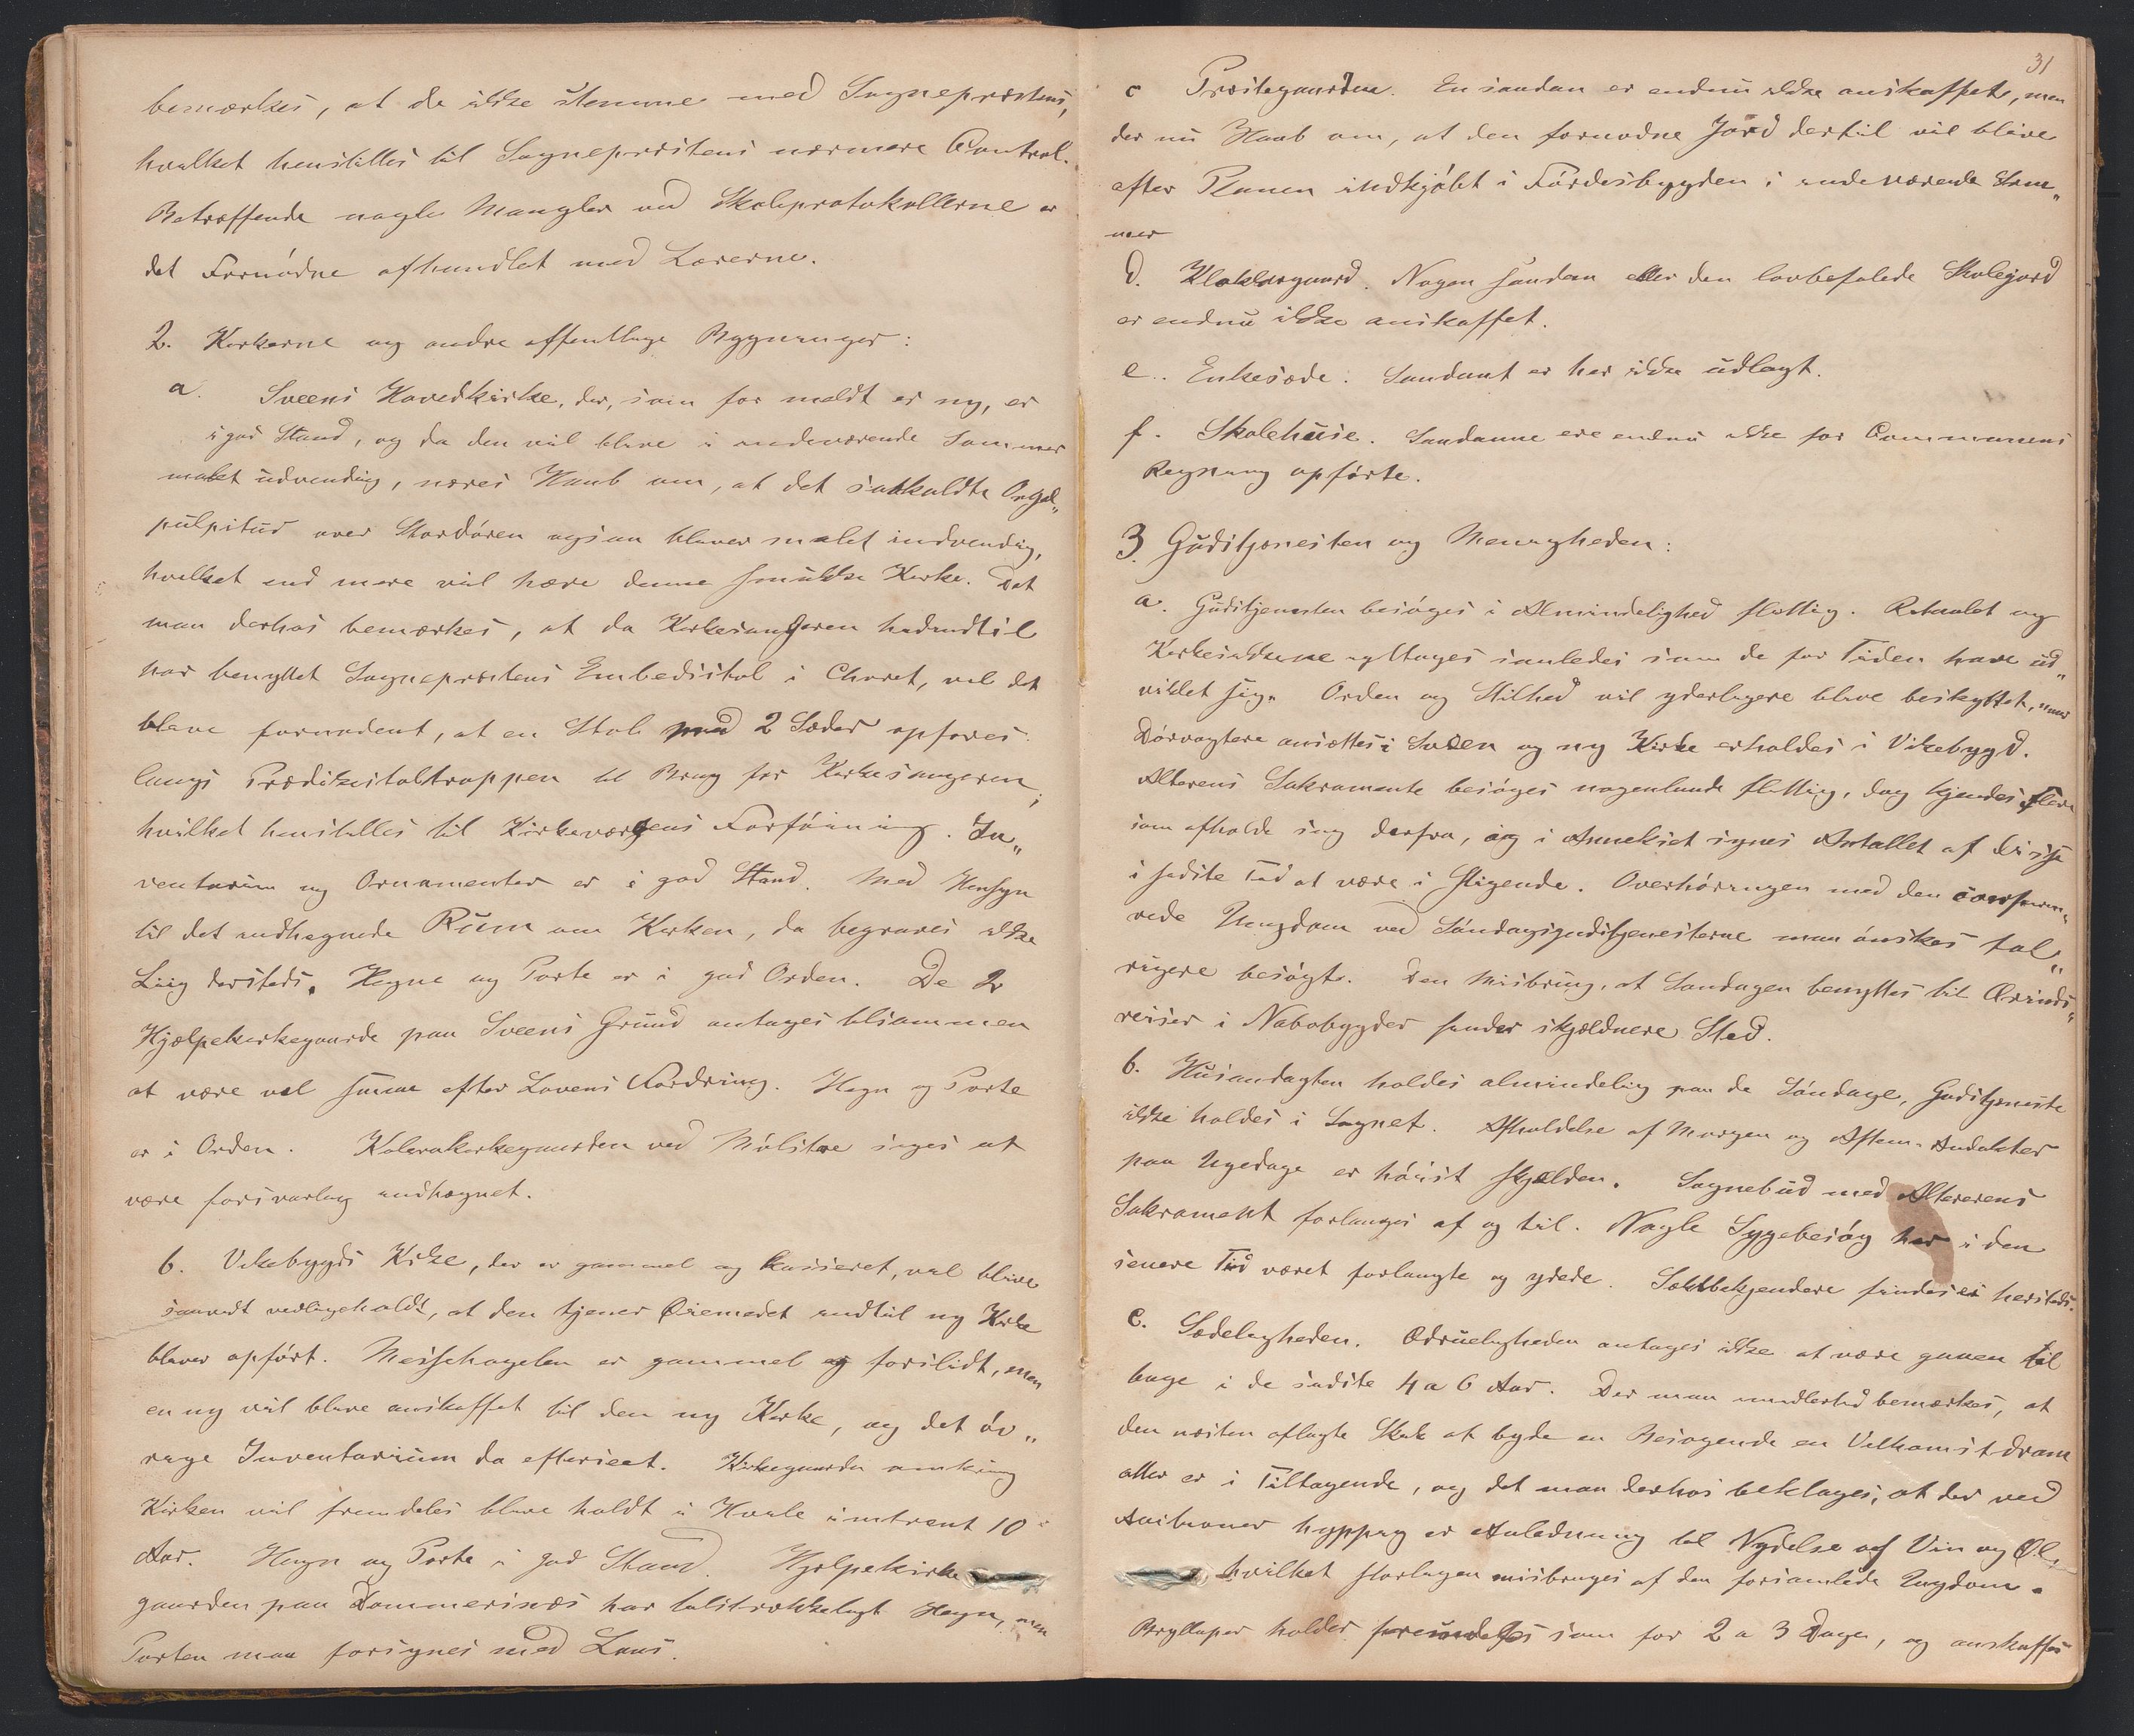 bemærkes, at de ikke stemme med Sognepræstens,
hvilket henstilles til Sognepræstens nærmere Control.
Betræffende nogle Mangler ved Skoleprotokollerne er
det Fornødne afhandlet med Lærerne.
2. Kirkerne og andre offentlige Bygninger:
a. Sveens Hovedkirke, der, som før meldt er ny, er
i god Stand, og da den vil blive i indeværende Sommer
malet udvendig, næres Haab om, at det saakaldte Orgel„
pulpitur over Stordøren ogsaa bliver malet indvendig,
hvilket end mere vil hæve denne smukke Kirke. Det
maa derhos bemærkes, at da Kirkesangeren hidindtil
har benyttet Sognepræstens Embedsstol i Choret, vil det
blive fornødent, at en Stol med 2 Sæder opføres
langs Prædikestoltrappen til Brug for Kirkesangeren;
hvilket henstilles til Kirkeværgens Forføining. In„
ventarium og Ornamenter er i god Stand. Med Hensyn
til det indhegnede Rum om Kirken, da begraves ikke
Liig dersteds. Hegne og Porte er i god Orden. De 2
Hjælpekirkegaarde paa Sveens Grund antages tilsammen
at være vel smaae efter Lovens Fordring. Hegn og Porte
er i Orden. Kolerakirkegaarden ved Mølstre siges at
være forsvarlig indhegnet.
b. Vikebygds Kirke, der er gammel og kasseret, vil blive
saavidt vedligeholdt, at den tjener Øiemedet indtil ny Kirke
bliver opført. Messehagelen er gammel og forslidt, men
en ny vil blive anskaffet til den ny Kirke, og det øv„
rige Inventarium da efterseet. Kirkegaarden omkring
Kirken vil fremdeles blive holdt i Hvile omtrent 10
Aar. Hegn og Porte i god Stand. Hjælpekirke
gaarden paa Dommersnæs har tilstrækkeligt Hegn, men
Porten maa forsynes med Laas.
31
c Præstegaarden. En saadan er endnu ikke anskaffet, men
der nu Haab om, at den fornødne Jord dertil vil blive
efter Planen indkjøbt i Førdesbygden i indeværende Som„
mer
d. Klokkergaard. Nogen saadan eller den lovbefalede Skolejord
er endnu ikke anskaffet.
e. Enkesæde. Saadant er her ikke udlagt.
f. Skolehuse. Saadanne ere endnu ikke for Communens
Regning opførte.
3. Gudstjenesten og Menigheden:
a. Gudstjenesten besøges i Almindelighed flittig. Ritualet og
Kirkeskikkene agttages saaledes som de før Tiden have ud„
viklet sig. Orden og Stilhed vil yderligere blive beskyttet, naar
Dørvogtere ansættes i Sveen og ny Kirke erholdes i Vikebygd.
Alterens Sakramente besøges nogenlunde flittig, dog kjendes Flere
som afholde sig derfra, og i Annekset synes Antallet af disse
i sidste Tid at være i Stigende. Overhøringen med den confirme„
rede Ungdom ved Søndagsgudstjenesterne maa ønskes tal„
rigere besøgt. Den Misbrug, at Søndagen benyttes til Ærinds„
reiser i Nabobygder finder skjældnere Sted.
b. Husandagten holdes almindelig paa de Søndage, Gudstjeneste
ikke holdes i Sognet. Afholdelse af Morgen og Aften-Andakter
paa Ugedage er høist skjelden. Sognebud med Alterens
Sakrament forlanges af og til. Nogle Sygebesøg har i den
senere Tid været forlangte og ydede. Sektbekjendere findes ei hersteds.
c. Sædeligheden. Ædrueligheden antages ikke at være gaaen til
bage i de sidste 4 a 6 Aar. Der maa imidlertid bemærkes, at
den næsten aflagte Skik at byde en Besøgende en Velkomstdram
atter er i Tiltagende, og det maa derhos beklages, at der ved
Auktioner hyppig er Anledning til Nydelse af Vin og Øl,
hvilket storligen misbruges af den forsamlede Ungdom.
Bryllupper holdes fremdeles som før 2 a 3 Dage, og anskaffes